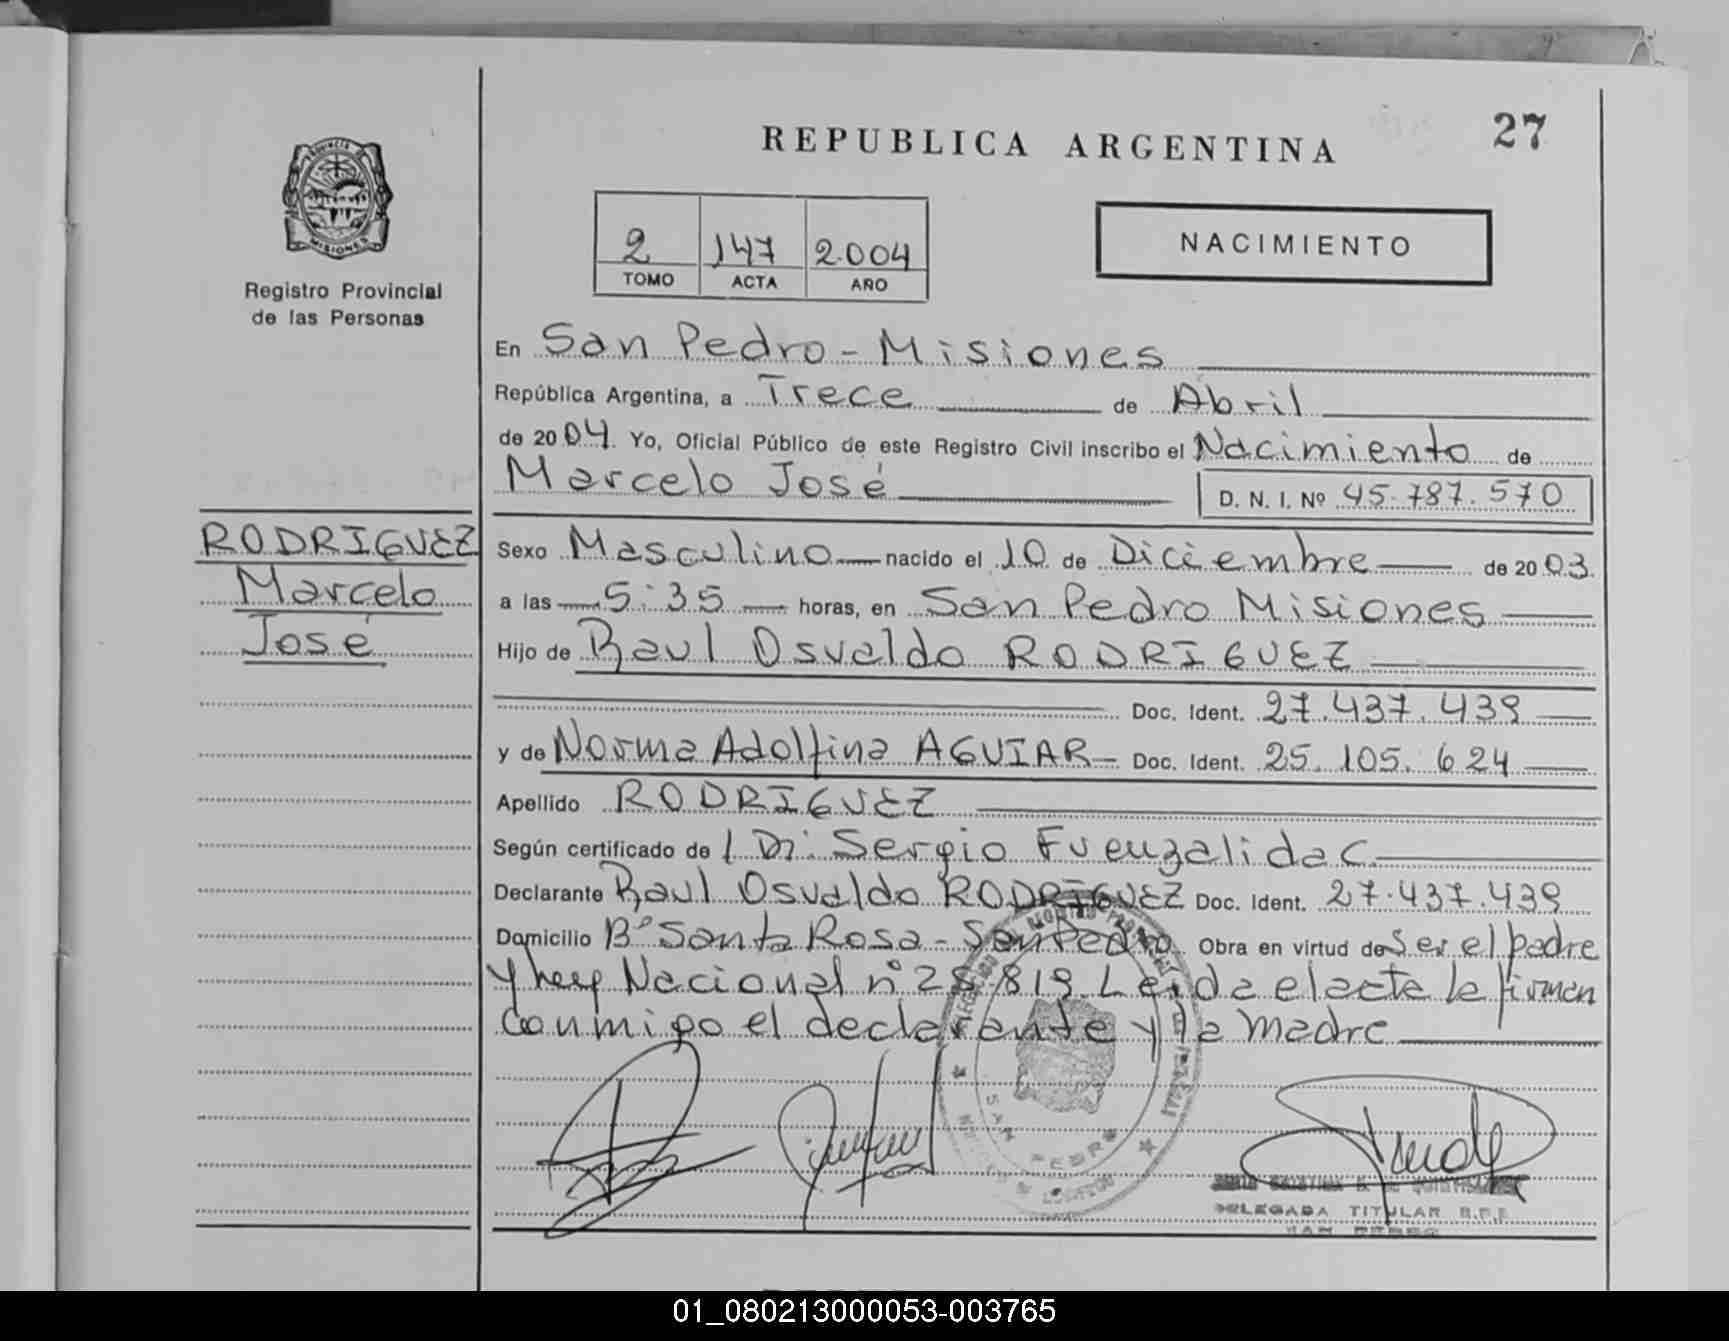 REPUBLICA ARGENTINA
27
PROVINCIA DE
MISIONES
Registro Provincial
de las Personas
2 147 2.004
TOMO ACTA AÑO
NACIMIENTO
En San Pedro - Misiones
República Argentina, a Trece de Abril
de 2004. Yo, Oficial Público de este Registro Civil inscribo el Nacimiento de
Marcelo José
D. N. I. Nº 45.787.570
RODRIGUEZ
Marcelo
José
Sexo Masculino nacido el 10 de Diciembre de 2003.
a las 5:35 horas, en San Pedro Misiones
Hijo de Raul Osvaldo RODRIGUEZ
Doc. Ident. 27.437.439
y de Norma Adolfina AGUIAR Doc. Ident. 25.105.624
Apellido RODRIGUEZ
Según certificado de Dr. Sergio Fuenzalida C.
Declarante Raul Osvaldo RODRIGUEZ Doc. Ident. 27.437.439
Domicilio Bº Santa Rosa - San Pedro Obra en virtud de Ser el padre
y ley Nacional nº 25.819. Leida el acta la firman
conmigo el declarante y la madre
SAN PEDRO
DELEGADA TITULAR R.P.P.
SAN PEDRO
01_080213000053-003765